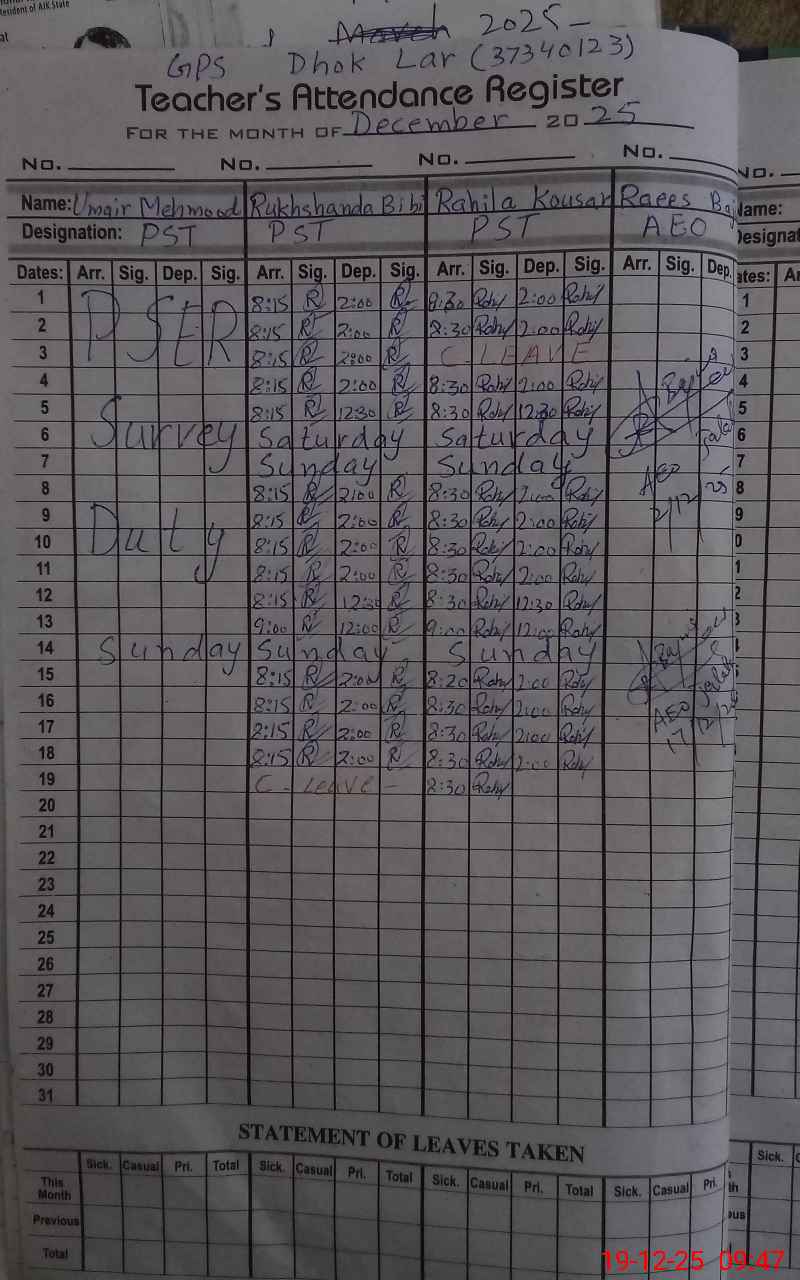 resident of AJK State
at
March 2025-
GPS Dhok Lar (37340123)
Teacher's Attendance Register
FOR THE MONTH OF December 2025
No. No. No. No. No.
Name: Umair Mehmood Rukhshanda Bibi Rahila Kousar Raees Name:
Designation: PST PST PST AEO
Dates: Arr. Sig. Dep. Sig. Arr. Sig. Dep. Sig. Arr. Sig. Dep. Sig. Arr. Sig. Dep.
1 PSER 8:15 R 2:00 R 8:30 Rahy 2:00 Rahy 1
2 8:15 R 2:00 R 8:30 Rahy 2:00 Rahy 2
3 8:15 R 2:00 R C. LEAVE 3
4 8:15 R 2:00 R 8:30 Rahy 2:00 Rahy 4
5 8:15 R 12:30 R 8:30 Rahy 12:30 Rahy 5
6 Survey Saturday Saturday 6
7 Sunday Sunday 7
8 8:15 R 2:00 R 8:30 Rahy 2:00 Rahy AEO 8
9 8:15 R 2:00 R 8:30 Rahy 2:00 Rahy 2/12/25 9
10 Duty 8:15 R 2:00 R 8:30 Rahy 2:00 Rahy
11 8:15 R 2:00 R 8:30 Rahy 2:00 Rahy
12 8:15 R 12:30 R 8:30 Rahy 12:30 Rahy
13 9:00 R 12:00 R 9:00 Rahy 12:00 Rahy
14 Sunday Sunday Sunday
15 8:15 R 2:00 R 8:20 Rahy 2:00 Rahy
16 8:15 R 2:00 R 8:30 Rahy 2:00 Rahy
17 8:15 R 2:00 R 8:30 Rahy 2:00 Rahy AEO
18 8:15 R 2:00 R 8:30 Rahy 2:00 Rahy 17/12/25
19 C. Leave - 8:30 Rahy
20
21
22
23
24
25
26
27
28
29
30
31
STATEMENT OF LEAVES TAKEN
Sick. Casual Pri. Total Sick. Casual Pri. Total Sick. Casual Pri. Total Sick. Casual Pri. Sick.
This Month
Previous
Total
19-12-25 09:47